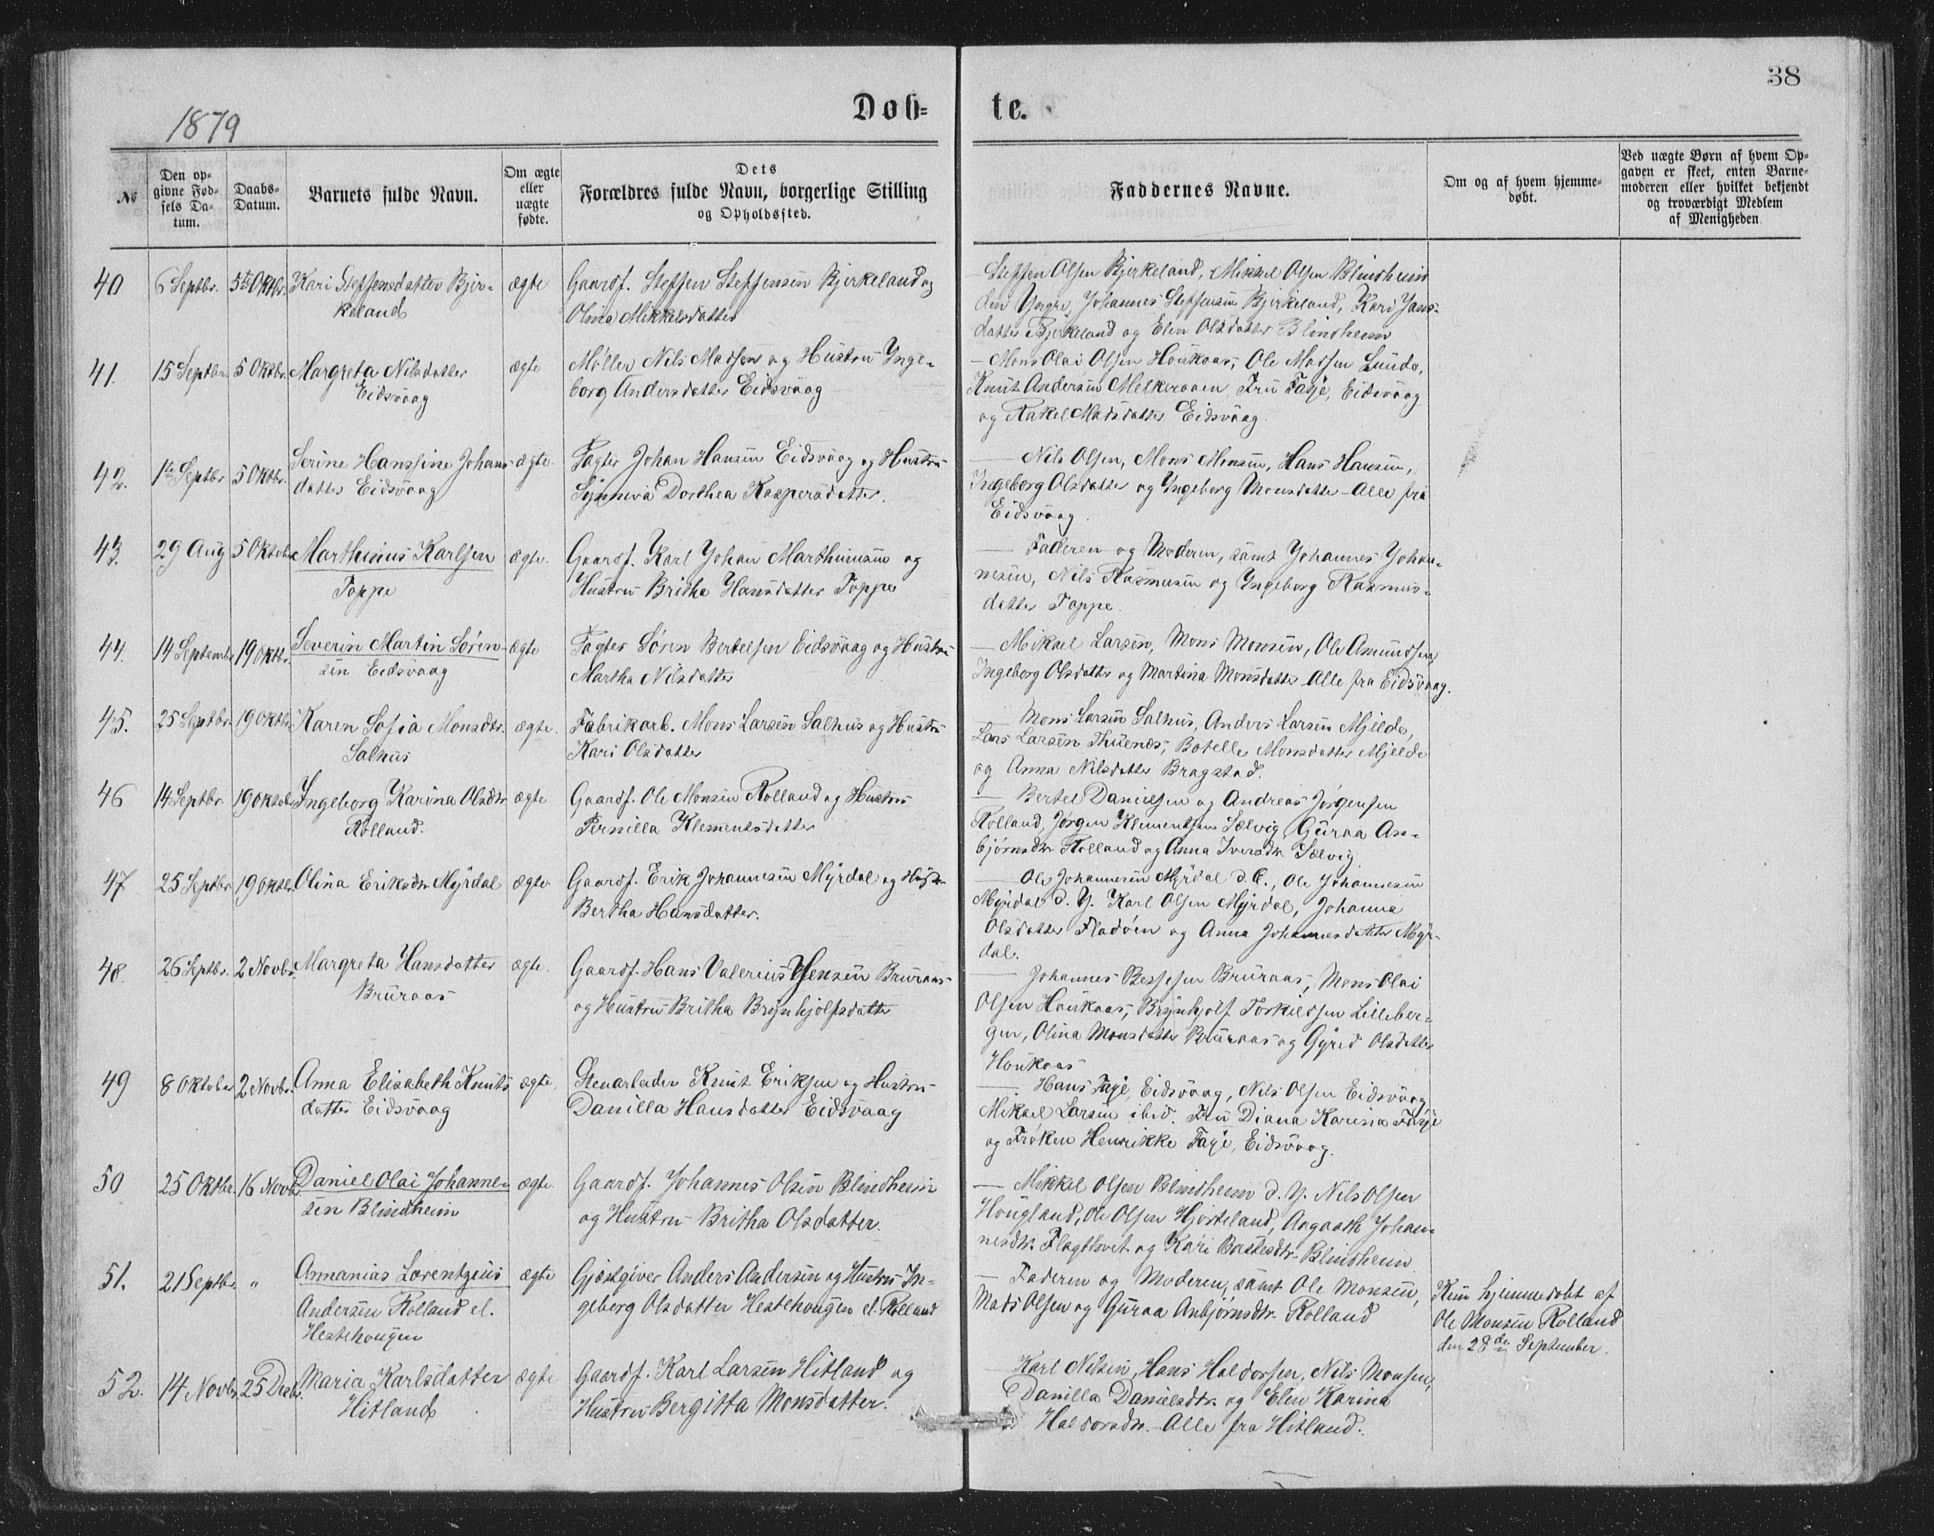 38
1879
Døb=
te.
№
Den op-
givne Fød-
sels Da-
tum.
Daabs-
Datum.
Barnets fulde Navn.
Om ægte
eller
uægte
fødte.
Dets
Forældres fulde Navn, borgerlige Stilling
og Opholdssted.
Faddernes Navne.
Om og af hvem hjemme-
døbt.
Ved uægte Børn af hvem Op-
gaven er skeet, enten Barne-
moderen eller hvilket bekjendt
og troværdigt Medlem
af Menigheden
40 6 Septbr. 5te Oktbr. Kari Steffensdatter Bjir-
keland
ægte
Gaardf. Steffen Steffensen Bjirkeland og
Olina Mikkelsdatter
Steffen Olsen Bjirkeland, Mikkel Olsen Blindheim
den Yngre, Johannes Steffensen Bjirkeland, Kari Jans-
datter Bjirkeland og Elen Olsdatter Blindheim
41. 15 Septbr. 5 Oktbr. Margreta Nilsdatter
Eidsvaag
ægte
Møller Nils Madsen og Hustru Inge-
borg Andersdatter Eidsvaag
Mons Olai Olsen Houkaas, Ole Madsen
Knut Andersen Melkeraaen, Fru Faye, Eidsvaag
og Rakel Madsdatter Eidsvaag.
42. 1te Septbr 5 Oktbr. Serine Hanssine Johans-
datter Eidsvaag
ægte
Fagter Johan Hansen Eidsvaag og Hustru
Synneva Dorthea Kaspersdatter.
Nils Olsen, Mons Monsen, Hans Hansen,
Ingeborg Olsdatter og Ingeborg Monsdatter – Alle fra
Eidsvaag.
43. 29 Aug 5 Oktobr. Marthinus Karlsen
Toppe
ægte.
Gaardf. Karl Johan Marthinusen og
Hustru Britha Hansdatter Toppe
Faderen og Moderen, samt Johannes Johan-
nesen, Nils Rasmusen og Ingeborg Rasmus-
datter Toppe.
44. 14 Septemb. 19 Oktbr. Severin Martin Søren-
sen Eidsvaag
ægte
Fagter Søren Bertelsen Eidsvaag og Hustru
Martha Nilsdatter
Mikael Larsen, Mons Monsen, Ole Amundsen,
Ingeborg Olsdatter og Martina Monsdatter – Alle fra Eidsvaag.
45. 25 Septbr. 19 Oktbr. Karen Sofia Monsdtr.
Salhus
ægte.
Fabrikarb. Mons Larsen Salhus og Hustru
Kari Olsdatter
Mons Larsen Salhus, Anders Larsen Mjelde,
Lars Larsen Thuenæs, Botelle Monsdatter Mjelde
og Anna Nilsdatter Bragstad.
46 14 Septbr. 19 Oktobr. Ingeborg Karina Olsdtr.
Rolland.
ægte
Gaardf. Ole Monsen Rolland og Hustru
Pernilla Klementsdatter
Bertel Danielsen og Andreas Jørgensen
Rolland, Jørgen Klementsen Sælvig, Guraa An-
bjørnsdtr. Rolland og Anna Iversdtr. Sælvig.
47 25 Septbr. 19 Oktbr. Olina Eriksdtr. Myrdal
ægte.
Gaardf. Erik Johannesen Myrdal og Hustr.
Bertha Hansdatter.
Ole Johannesen Myrdal d. E., Ole Johannesen
Myrdal d. Y. Karl Olsen Myrdal, Johanna
Olsdatter Fladøen og Anna Johannesdatter Myr-
dal.
48. 26 Septbr. 2 Novbr. Margreta Hansdatter
Bruraas
ægte.
Gaardf. Hans Valerius Jensen Bruraas
og Hustru Britha Brynhjolfsdatter
Johannes Bessesen Bruraas, Mons Olai
Olsen Houkaas, Brynhjolf Torkildsen Lilleber-
gen, Olina Monsdatter Bruraas og Gyrid Olsdatter
Houkaas
49 8 Oktober 2 Novbr. Anna Elisabeth Knuts-
datter Eidsvaag
ægte,
Stenarbeider Knut Eriksen og Hustru
Danilla Hansdatter Eidsvaag
Hans Faye, Eidsvaag, Nils Olsen Eidsvaag,
Mikael Larsen ibid. Fru Diana Karina Faye
og Frøken Henrikke Faye, Eidsvaag.
50 25 Oktbr. 16 Novbr. Daniel Olai Johannes-
sen Blindheim
ægte
Gaardf. Johannes Olsen Blindheim
og Hustru Britha Olsdatter.
Mikkel Olsen Blindheim d. Y. Nils Olsen
Hougland, Ole Olsen Hjorteland, Aagaath Johan-
nesdtr. Flagtveit og Kari Blindheim
51. 21 Septbr. „ Annanias Lorentzeus
Andersen Rolland el.
Hestehougen
ægte
Gjæstgiver Anders Andersen og Hustru In-
geborg Olsdatter Hestehougen el. Rolland
Faderen og Moderen, samt Ole Monsen,
Mads Olsen og Guraa Anbjørnsdtr. Rolland
Kun hjemmedøbt af
Ole Monsen Rolland
den 28de September.
52. 14 Novbr. 25 Decbr. Maria Karlsdatter
Hitland
ægte
Gaardf. Karl Larsen Hitland og
Hustru Bergitta Monsdatter.
Karl Nilsen, Hans Haldorsen, Nils Monsen,
Danilla Danielsdtr. og Elen Karina
Haldorsdtr. – Alle fra Hitland.